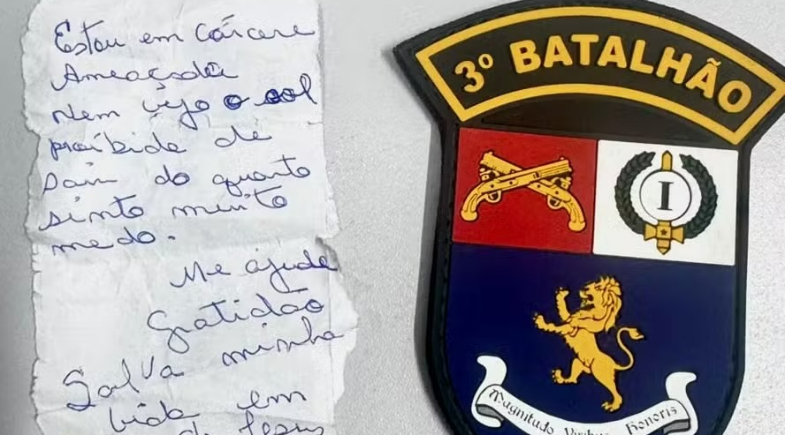 Estou em cárcere
Ameaçada
Nem vejo o sol
proibida de
Sair do quarto
sinto muito
medo.
Me ajude
Gratidão
Salva minha
vida em
de Jesus
3º BATALHÃO
I
Magnitudo Honoris